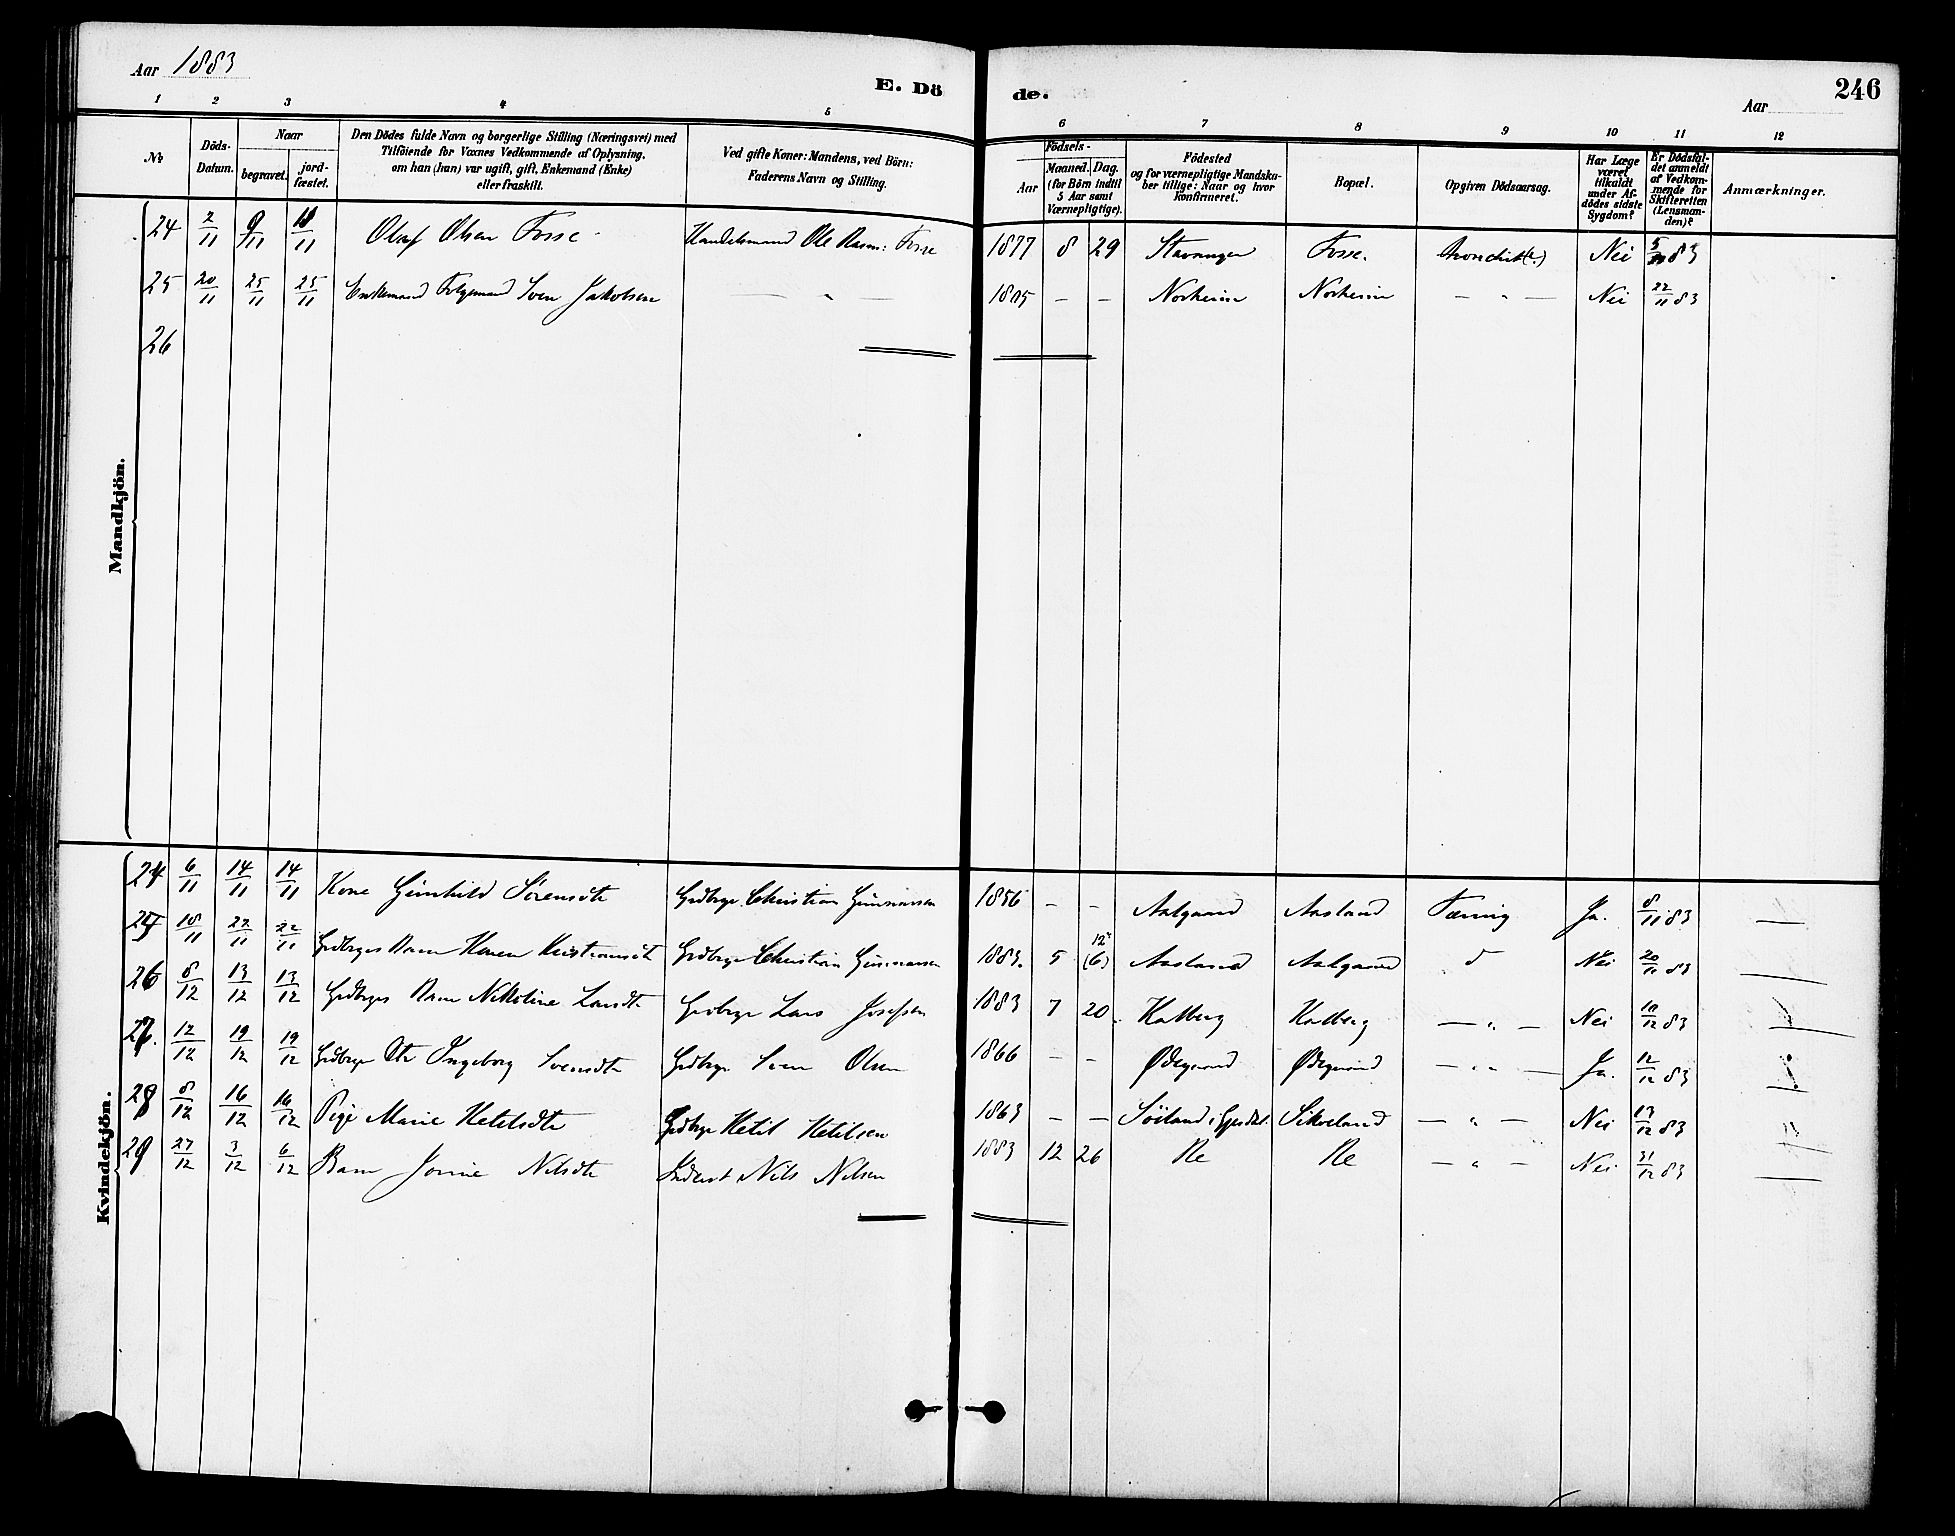 Aar 1883
E. Dö de.
Aar
246
1 2 3 4 5 6 7 8 9 10 11 12
No
Döds-Datum.
Naar begravet. jordfæstet.
Den Dödes fulde Navn og borgerlige Stilling (Næringsvei) med
Tilföiende for Voxnes Vedkommende af Oplysning,
om han (hun) var ugift, gift, Enkemand (Enke)
eller fraskilt.
Ved gifte Koner: Mandens, ved Börn:
Faderens Navn og Stilling.
Födsels-
Aar Maaned. Dag.
(for Börn indtil
5 Aar samt
Værnepligtige).
Födested
og for værnepligtige Mandskaber tillige: Naar og hvor
konfirmeret.
Bopæl.
Opgiven Dödsaarsag.
Har Læge været tilkaldt under Afdödes sidste Sygdom?
Er Dödsfaldet anmeldt af Vedkommende for Skifteretten (Lensmanden)?
Anmærkninger.
Mandkjön.
24 2/11 9/11 11 Olaf Olsen Fosse Handelsmand Ole Rasm: Fosse 1877 8 29 Stavanger Fosse. Nei 5/11 83
25 20/11 25/11 25/11 Enkemand Folgemand Sven Jakobsen — " — 1805 — — Norheim Norheim — " — Nei 22/11 83
26
Kvindekjön.
24 6/11 14/11 14/11 Kone Gunhild Sörensdtr Grdbrgr. Christian Gunnarsen 1856 — — Aalgaard Aasland Tæring Ja. 8/11 83 —
25 18/11 22/11 22/11 Grdbrgrs Barn Karen Kristiansdtr Grdbrgr Christian Gunnarsen 1883. 5 12 (6) Aasland Aalgaard d Nei 20/11 83 —
26 8/12 13/12 13/12 Grdbrgrs Barn Nikoline Larsdtr Grdbrgr Lars Josefsen 1883 7 20. Kalberg Kalberg — " — Nei 10/12 83
27. 12/12 19/12 19/12 Grdbrgr Dtr Ingeborg Svensdtr Grdbrgr Sven Olsen 1866 — — Ødegaard Ødegaard — " — Ja. 12/12 83
28 8/12 16/12 16/12 Pige Marie Ketilsdtr Grdbrgr Ketil Ketilsen 1863 — — Söiland i Gjesdal. Sikveland — " — Nei 13/12 83
29 27/12 3/12 6/12 Barn Jonine Nilsdtr Nils Nilsen 1883 12 26 Re Re — " — Nei 31/12 83